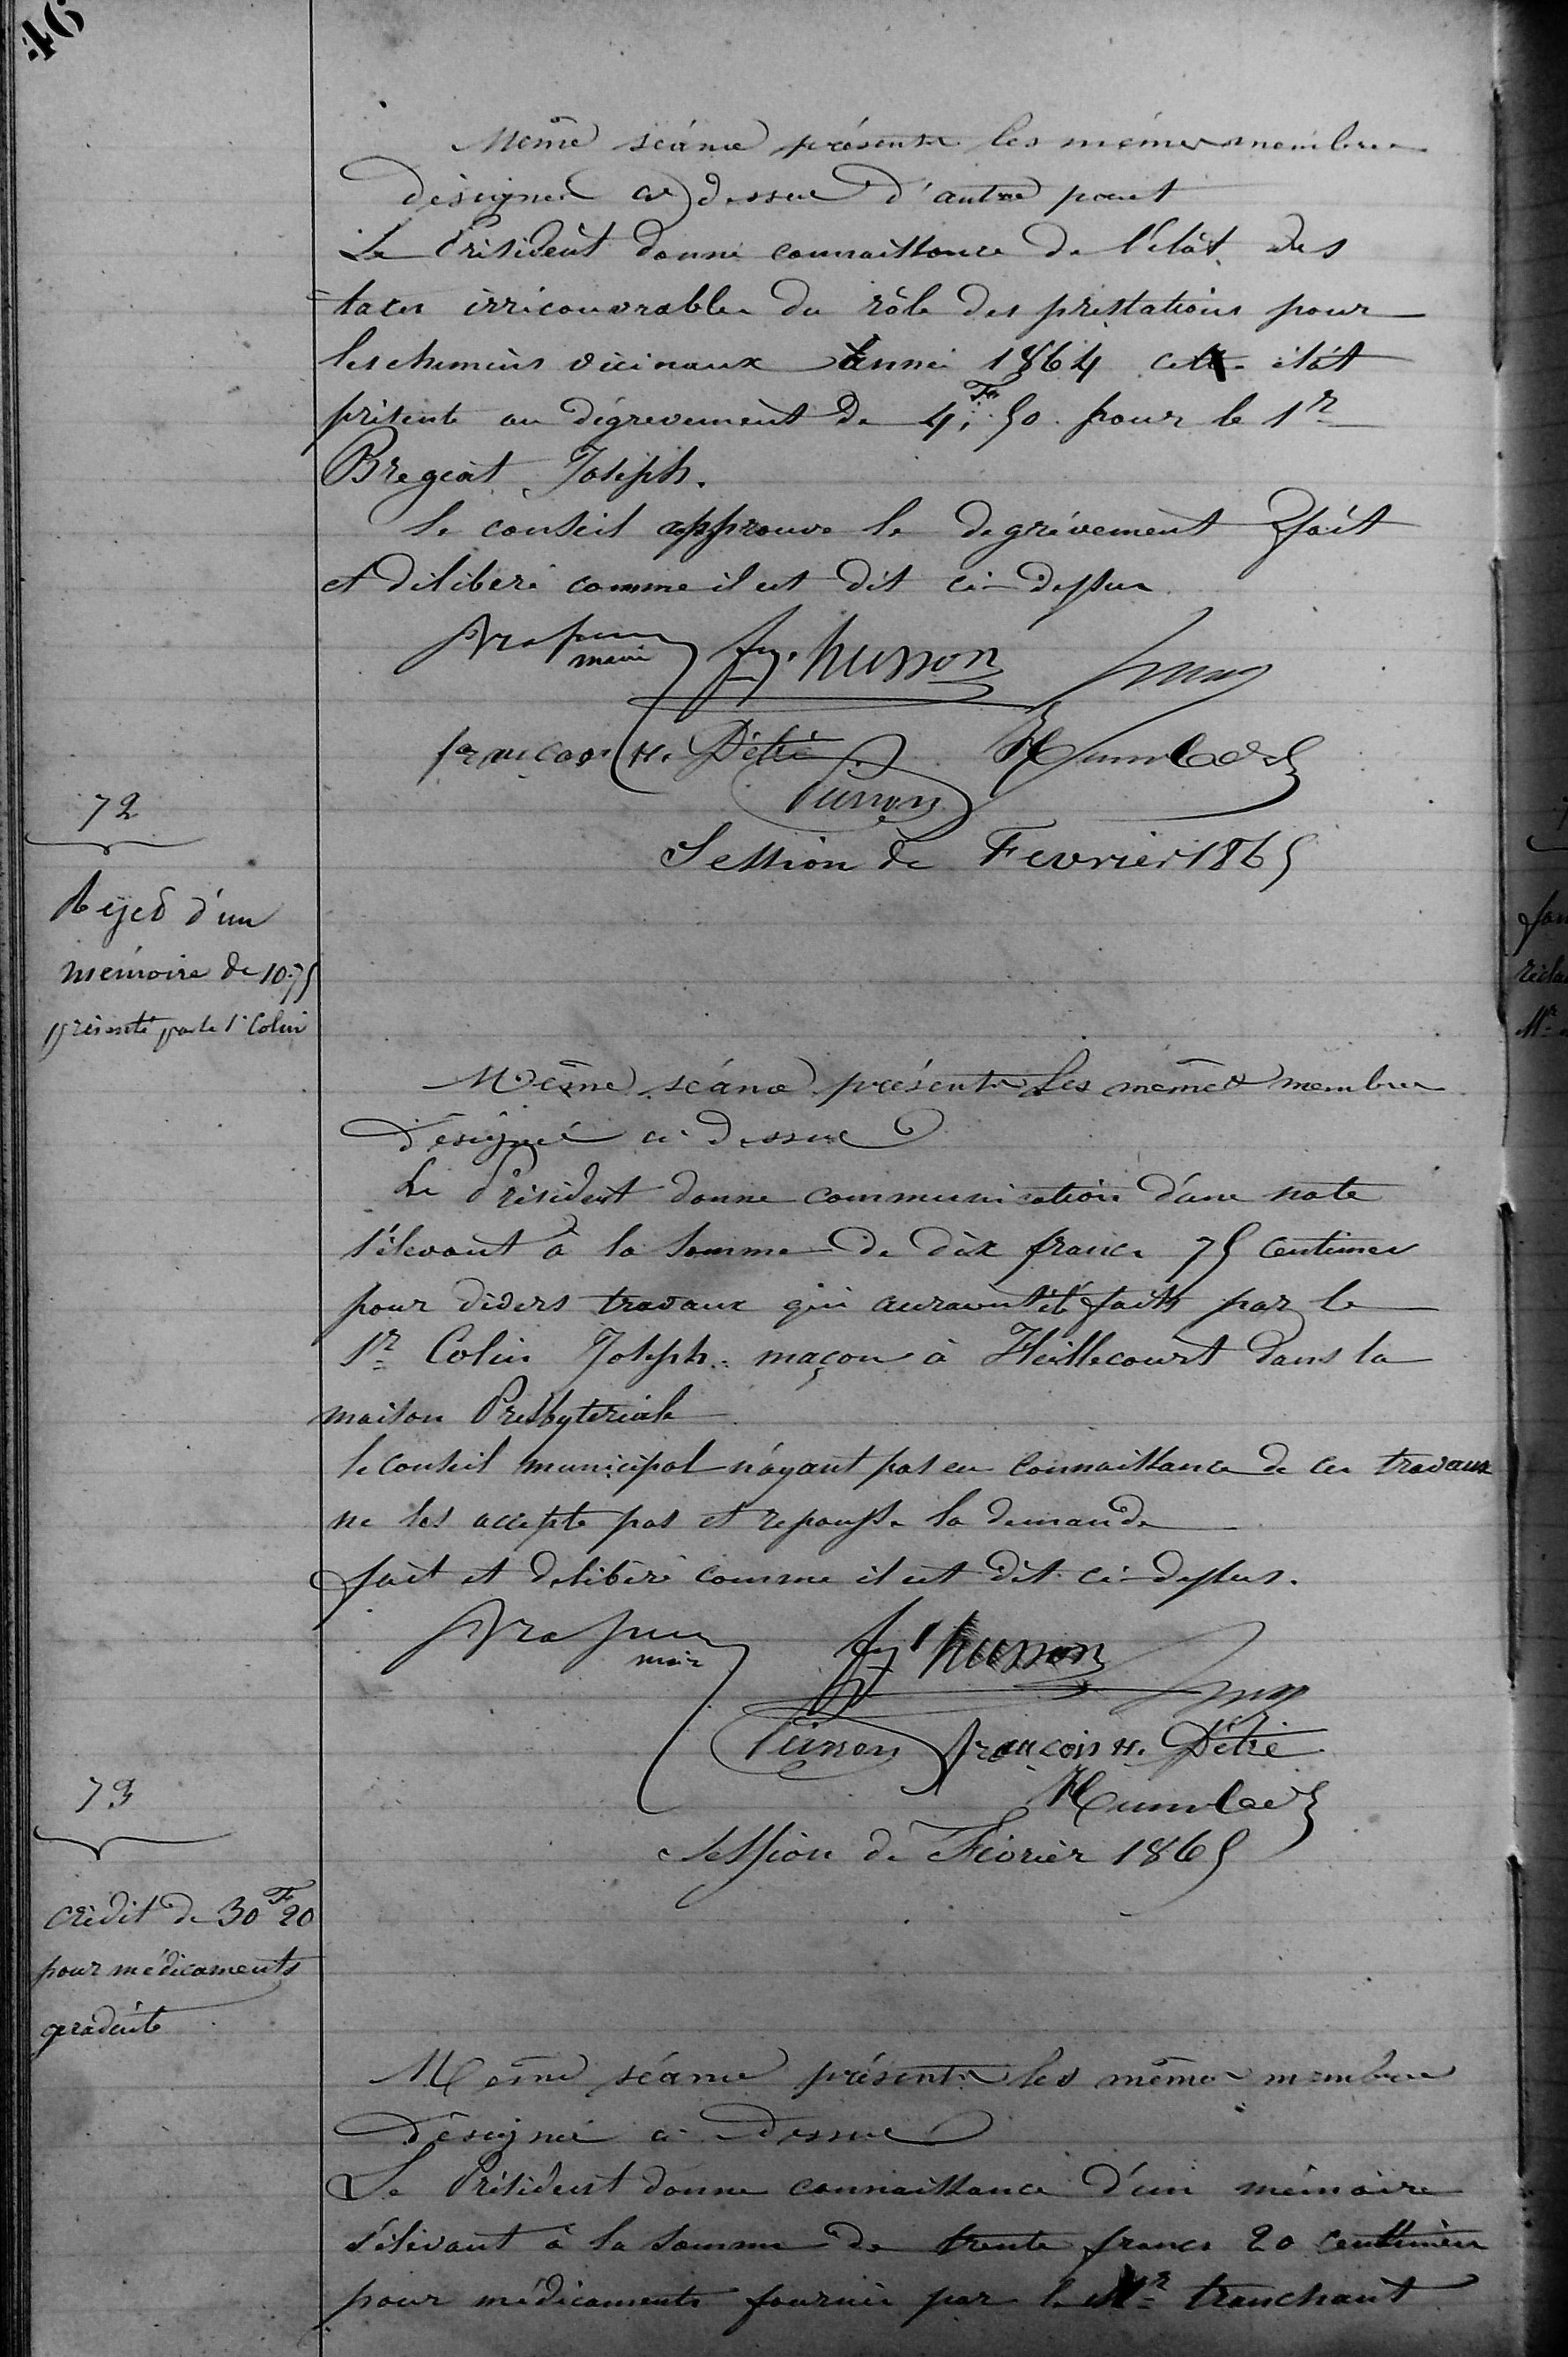 46
Même séance présents les mêmes membres
désignés ci dessus d'autre part
Le Président donne connaissance de l'état des
taxes irrécouvrables du rôle des prestations pour
les chemins vicinaux année 1864 cet état
présente un dégrèvement de 4,F50 pour le Sr
Bregeat Joseph.
le conseil approuve le dégrèvement fait
et délibéré comme il est dit ci-dessus
maire fs. husson
françois H. Détré Humbert
Session de Fevrier 1865
72
Rejet d'un
mémoire de 10.75
présenté par le Sr Colin
Même séance présents Les mêmes membres
désignés ci dessus
Le Président donne communication d'une note
s'élevant à la somme de dix francs 75 centimes
pour divers travaux qui auraient été faits par le
Sr Colin Joseph. maçon à Heillecourt dans la
maison Presbytériale
le conseil municipal n'ayant pas eu connaissance de ces travaux
ne les accepte pas et repousse la demande
fait et délibéré comme il est dit ci-dessus.
maire husson
françois H. Détré
Humbert
Session de Février 1865
73
crédit de 30F20
pour médicaments
gratuits
Même séance présents les mêmes membres
désignés ci-dessus
Le Président donne connaissance d'un mémoire
s'élevant à la somme de trente francs 20 centimes
pour médicaments fournis par le Mr tranchant